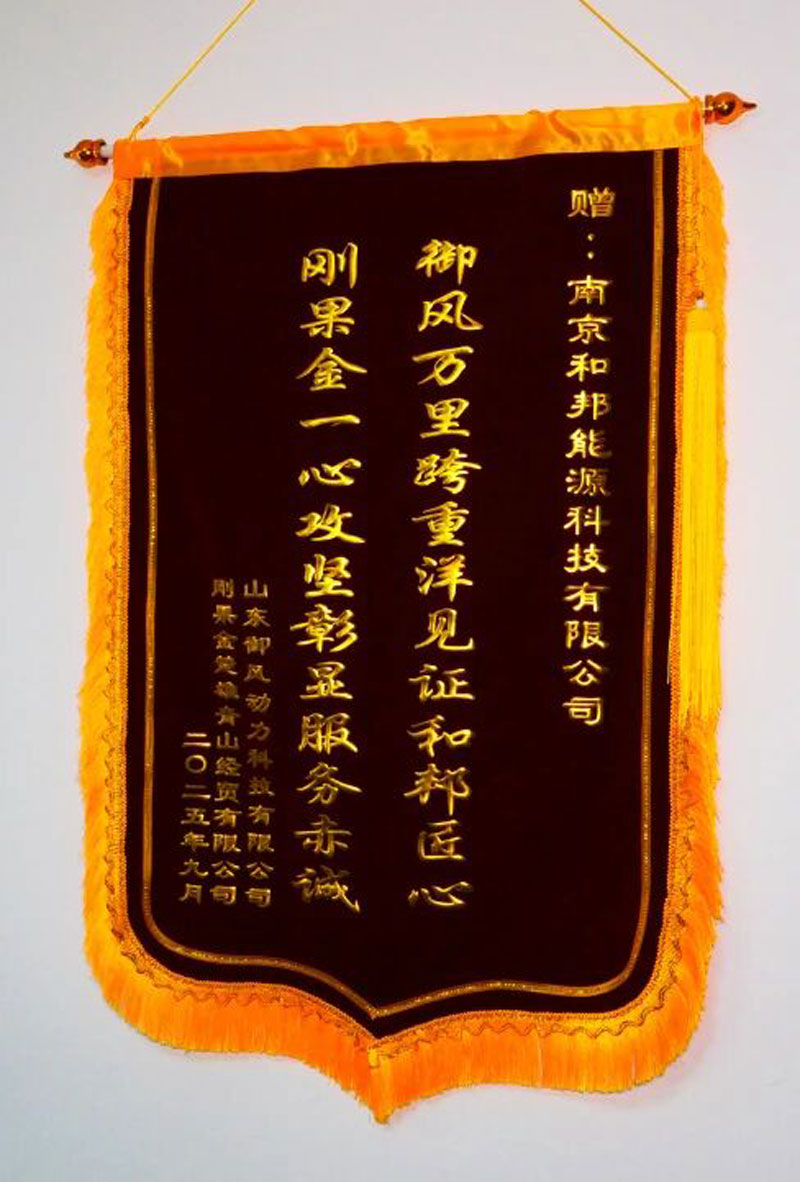 赠：南京和邦能源科技有限公司
御风万里跨重洋见证和邦匠心
刚果金一心攻坚彰显服务赤诚
山东御风动力科技有限公司
刚果金楚雄青山经贸有限公司
二〇二五年九月